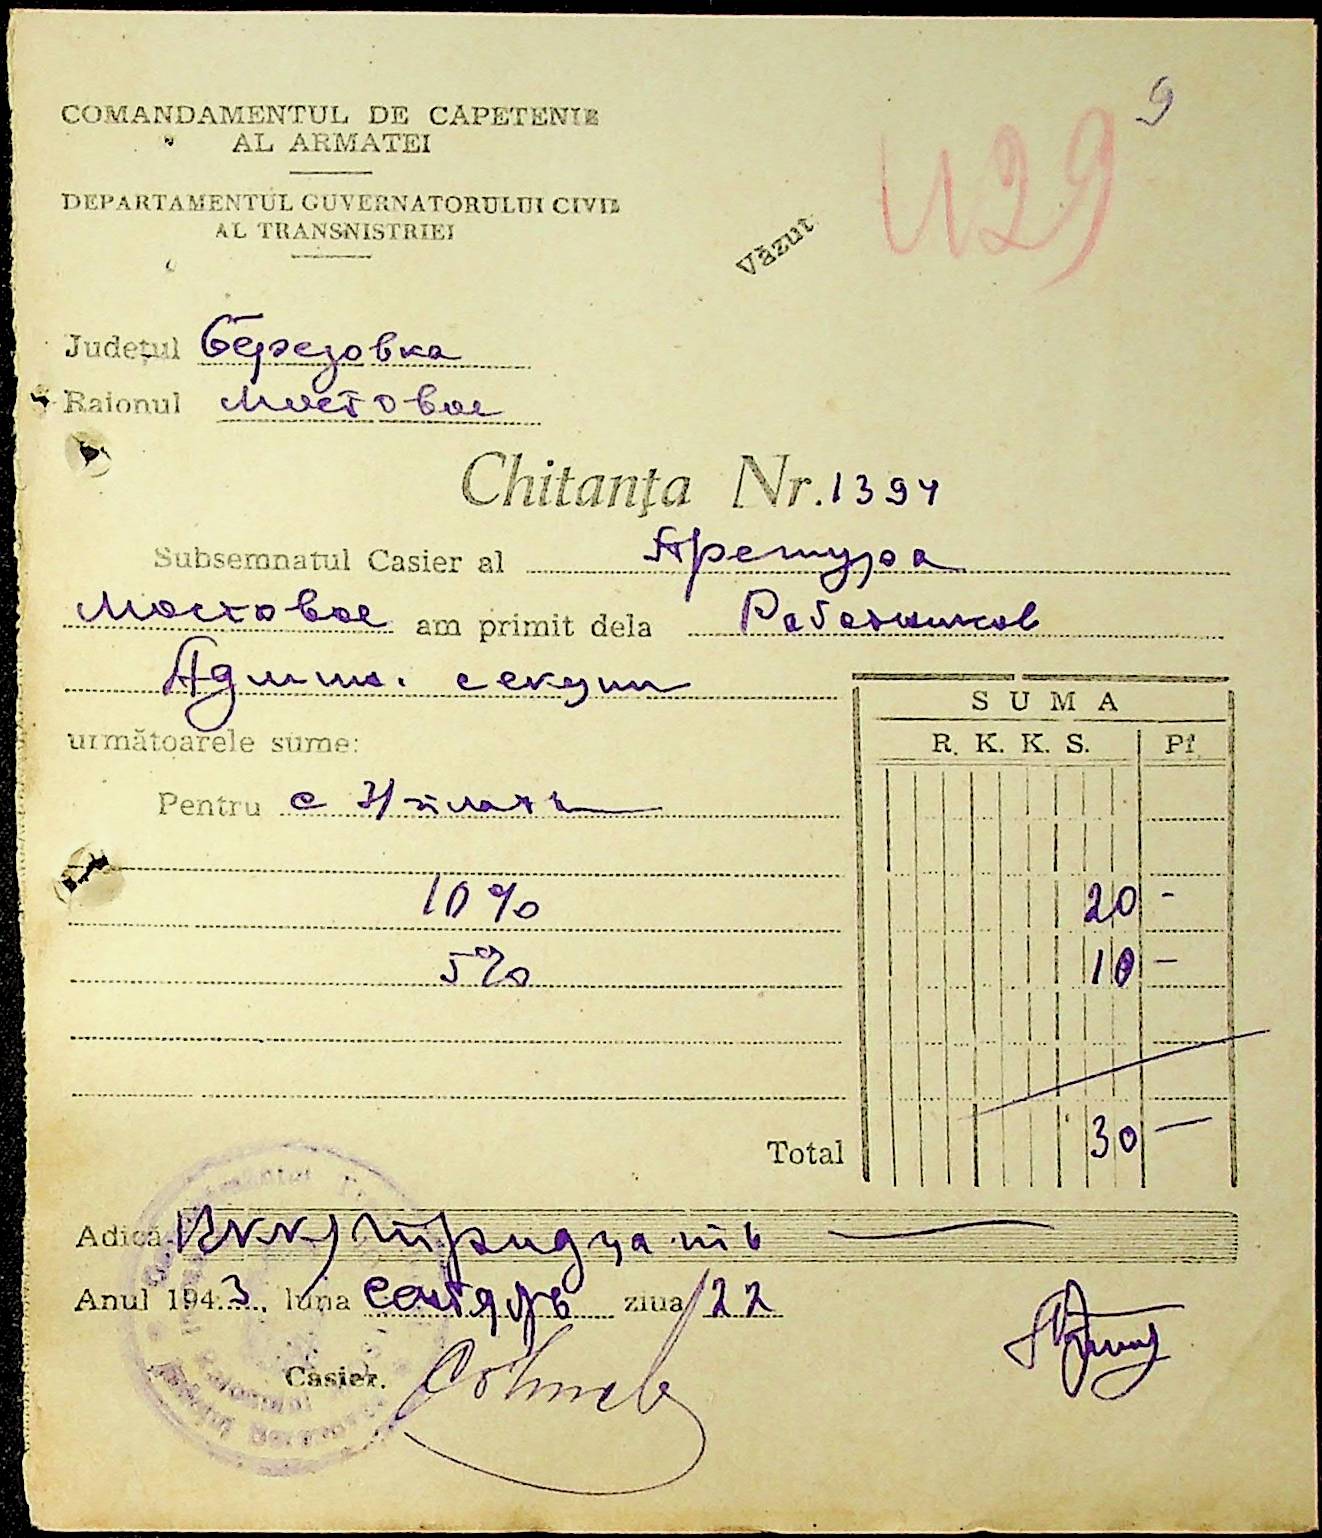 9
429
COMANDAMENTUL DE CAPETENIE
AL ARMATEI
DEPARTAMENTUL GUVERNATORULUI CIVIL
AL TRANSNISTRIEI
Văzut
Județul Березовка
Raionul Мостовое
Chitanța Nr. 1394
Subsemnatul Casier al Претура
Мостовое am primit dela Работников
Админ. секции
următoarele sume:
SUMA
R. K. K. S. Pf.
Pentru с З/платы
10% 20 -
5% 10 -
Total 30 -
Adică Тридцать
Anul 1943, luna Сентябрь ziua 22
Casier.